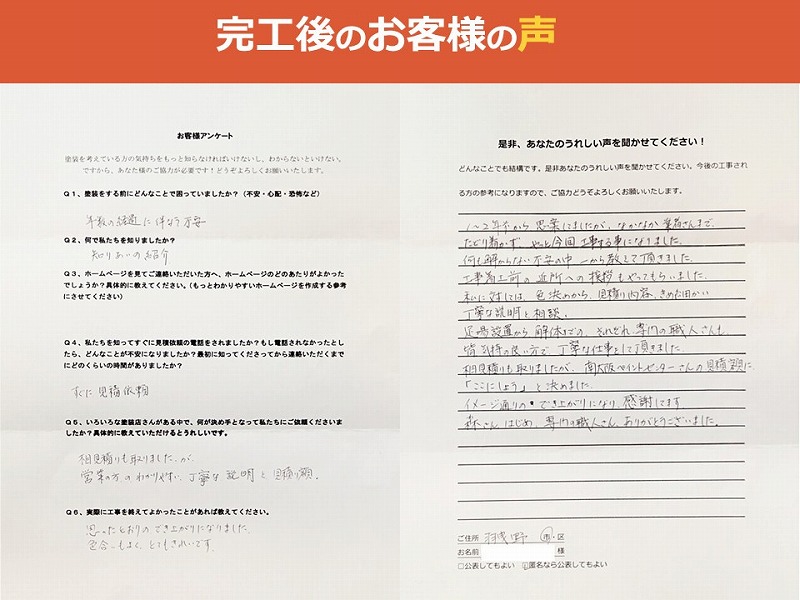 完工後のお客様の声
お客様アンケート
塗装を考えている方の気持ちをもっと知らなければいけないし、わからないといけない。
ですから、あなた様のご協力が必要です！どうぞよろしくお願いいたします。
Q1、塗装をする前にどんなことで困っていましたか？（不安・心配・恐怖など）
年数の経過に伴なう不安
Q2、何で私たちを知りましたか？
知りあいの紹介
Q3、ホームページを見てご連絡いただいた方へ、ホームページのどのあたりがよかった
でしょうか？具体的に教えてください。（もっとわかりやすいホームページを作成する参考
にさせてください）
Q4、私たちを知ってすぐに見積依頼の電話をされましたか？もし電話されなかったとし
たら、どんなことが不安になりましたか？最初に知ってくださってから連絡いただくまで
にどのくらいの時間がありましたか？
すぐに見積依頼
Q5、いろいろな塗装店さんがある中で、何が決め手となって私たちにご依頼くださいま
したか？具体的に教えていただけるとうれしいです。
相見積りも取りましたが、
営業の方のわかりやすい、丁寧な説明と見積り額。
Q6、実際に工事を終えてよかったことがあれば教えてください。
思ったとおりのでき上がりになりました。
色合いもよく、とてもきれいです。
是非、あなたのうれしい声を聞かせてください！
どんなことでも結構です。是非あなたのうれしい声を聞かせてください。今後の工事され
る方の参考になりますので、ご協力どうぞよろしくお願いいたします。
1～2年前から思案してましたが、なかなか業者さんまで、
たどり着かず、やっと今回工事する事になりました。
何も解からない不安の中、一から教えて頂きました。
工事着工前の近所への挨拶もやってもらいました。
私に対しては、色決めから、見積り内容、きめ細かい
丁寧な説明と相談。
足場設置から解体までの、それぞれ専門の職人さんも、
皆気持の良い方で、丁寧な仕事をして頂きました。
相見積りも取りましたが、南大阪ペイントセンターさんの見積額に
「ここにしよう」と決めました。
イメージ通りのでき上がりになり、感謝してます
森さんはじめ、専門の職人さん、ありがとうございました。
ご住所 羽曳野 市・区
お名前 様
□公表してもよい ☑匿名なら公表してもよい